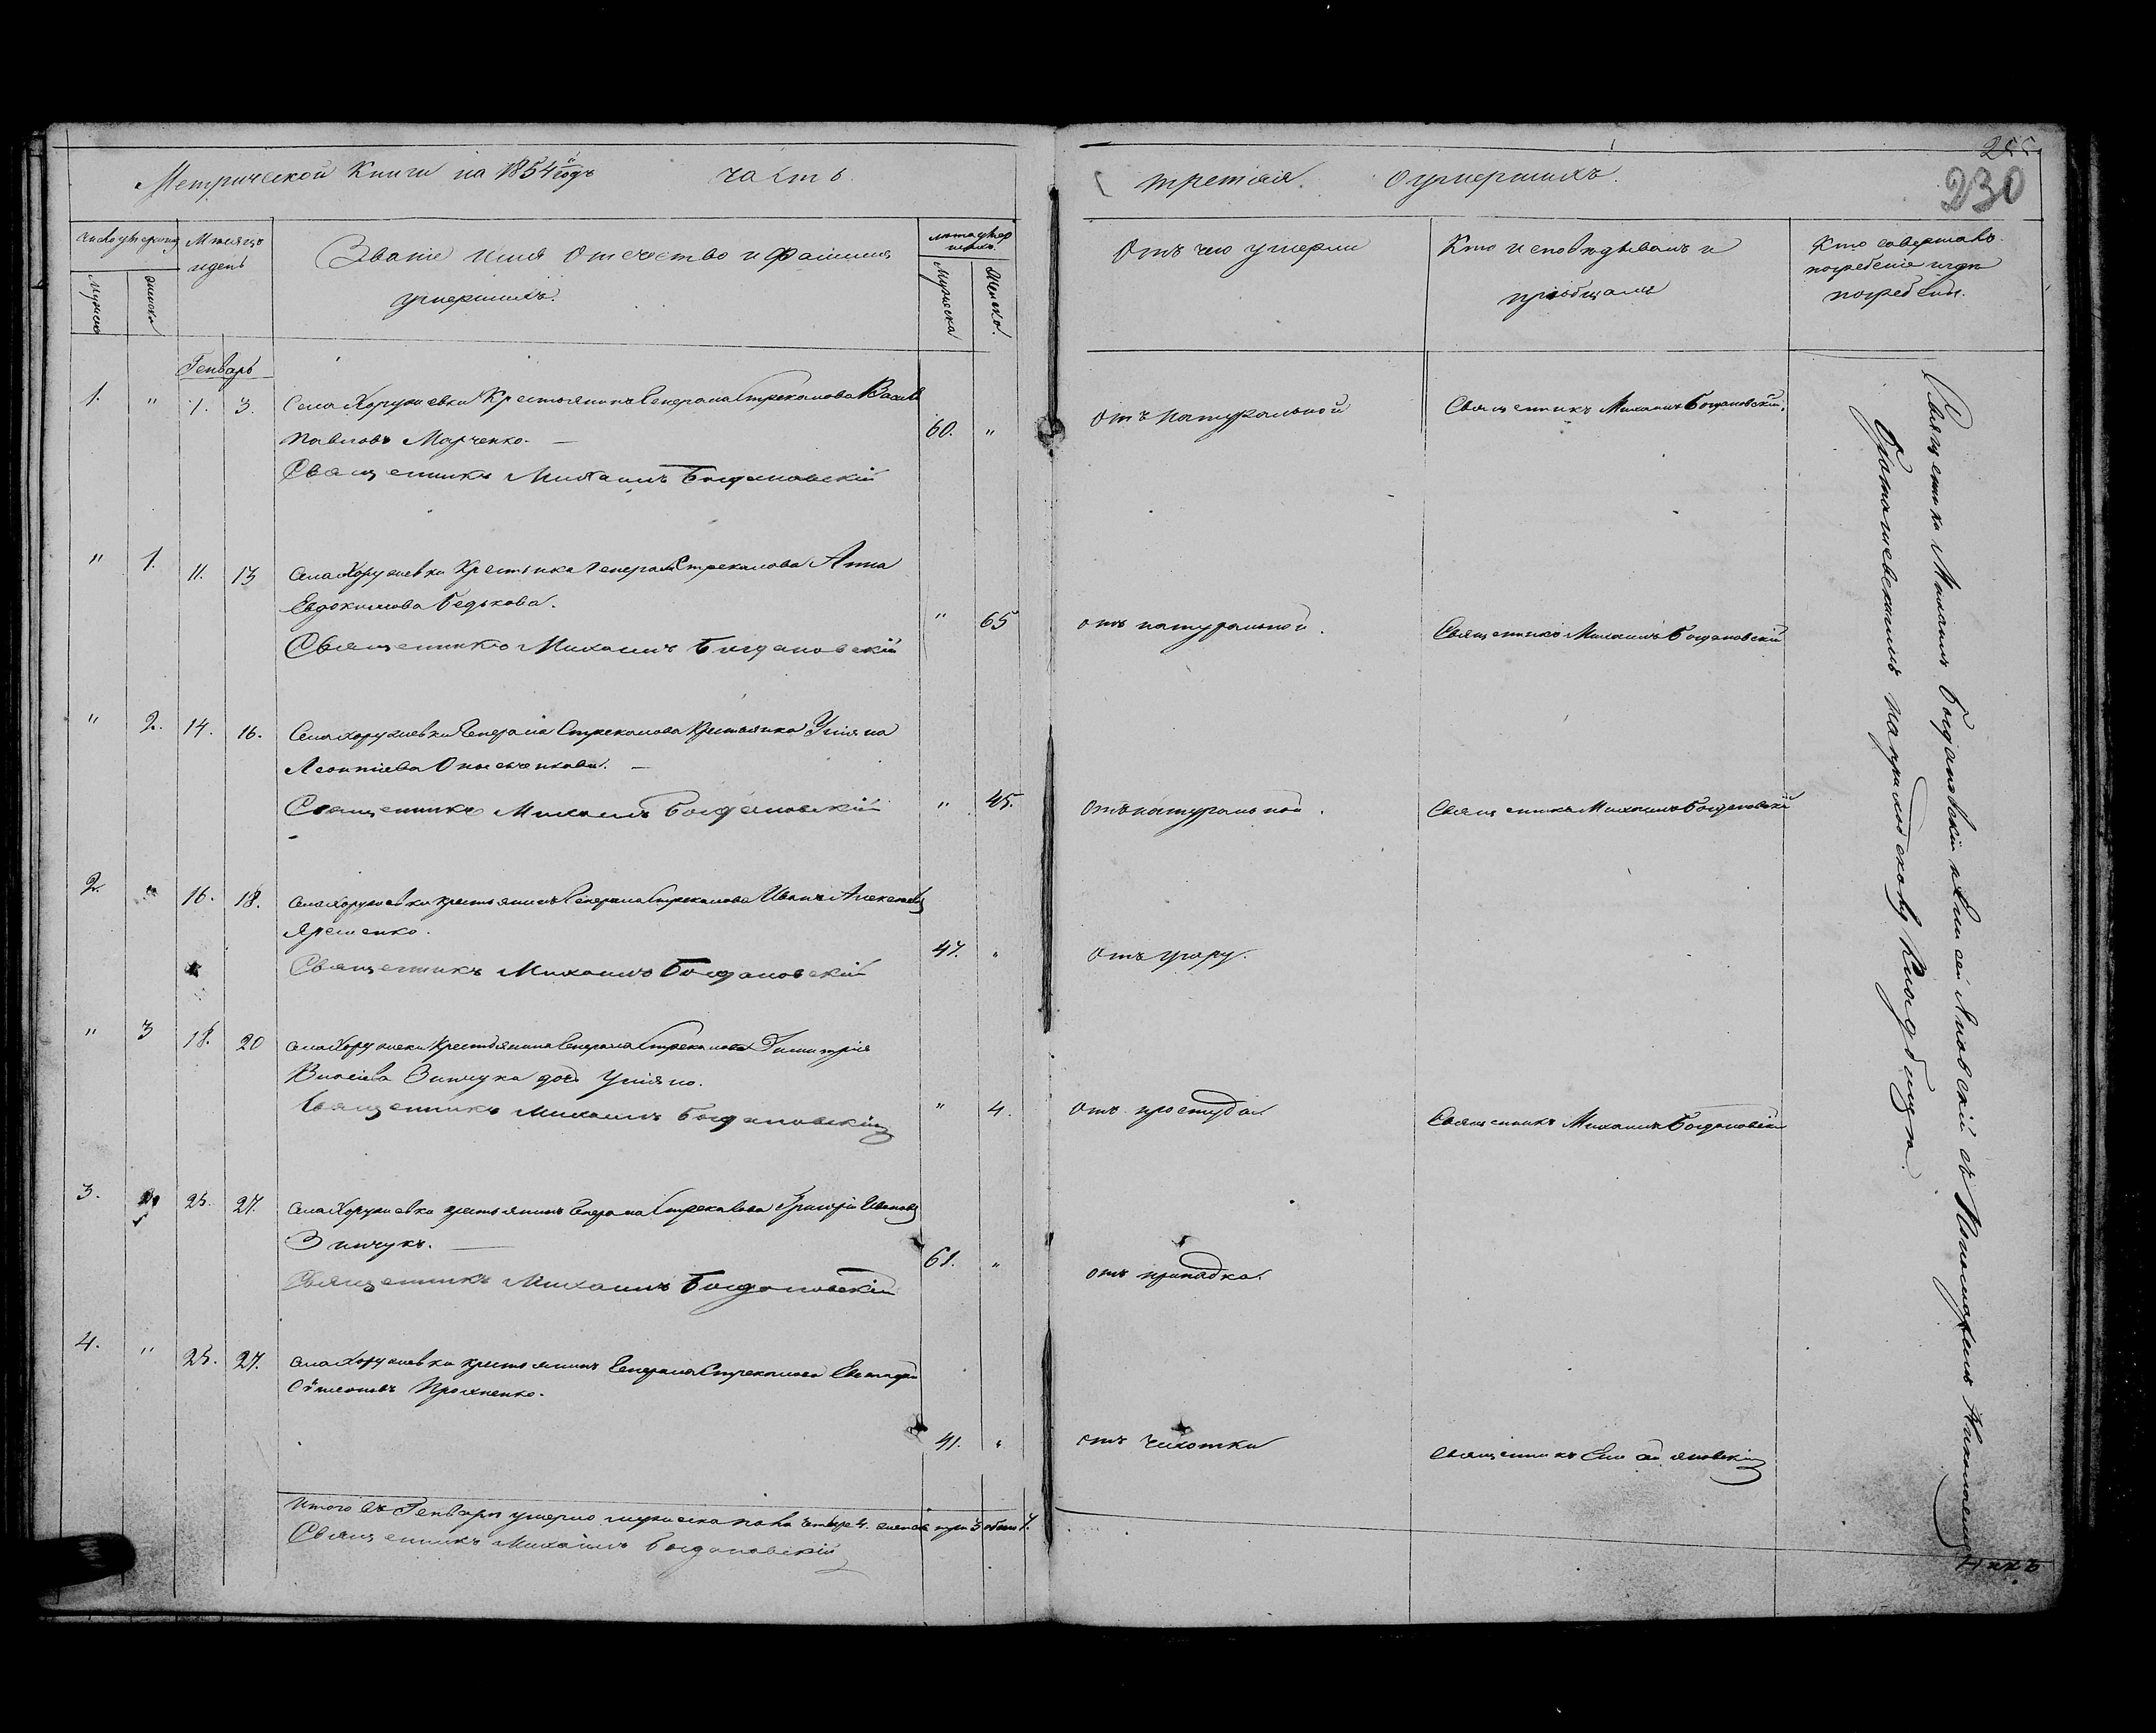 Метрической Книги на 1854й годъ часть
третая О умершихъ.
230
Число умершихъ
Мужеска
женска
Мѣсяцъ и день
Званіе имя отечество и фамилія
умершихъ.
лѣта умер
шихъ.
Мужеска
Женска.
Отъ чего умерли
Кто исповѣдывалъ и
пріобщалъ
Кто совершалъ
погребеніе и гдѣ
погребены.
Генварь
1. " 1. 3. Села Хоружевки Крестьянинъ Генерала Стрекалова Васил
Павловъ Марченко. —
60. " отъ натуральной Священникъ Михаилъ Богдановскій.
Священникъ Михаилъ Богдановскій
" 1. 11. 13 Села Хоружевки Крестьнка Генерала Стрекалова Анна
Евдокимова Бедькова.
" 65 отъ натуральной. Священникъ Михаилъ Богдановскій
Священникъ Михаилъ Богдановскій
" 2. 14. 16. Села Хоружевки Генерала Стрекалова Крестьянка Уліяна
Леонтіева —
" 45. Отъ натуральной. Священникъ Михаилъ Богдановскій
Священникъ Михаилъ Богдановскій
2. " 16. 18. Села Хоружевки крестьянинъ Генерала Стрекалова Иванъ Алексѣевъ
Яременко.
47. " Отъ угару.
Священникъ Михаилъ Богдановскій
" 3 18. 20 Села Хоружевки Крестьянина Генерала Стрекалова Димитрія
Зинчука дочь Уліяна.
" 4. Отъ простуды Священникъ Михаилъ Богдановскій
Священникъ Михаилъ Богдановскій
3. " 25. 27. Села Хоружевки крестьянинъ Генерала Стрекалова Григорій Ивановъ
Зинчукъ. —
61. " отъ припадка.
Священникъ Михаилъ Богдановскій
4. " 25. 27. Села Хоружевки крестьянинъ Генерала Стрекалова
Сѵмеоновъ
41. " отъ чихотки Священникъ
Итого въ Генварѣ умерло мужеска пола четыре 4. женска три 3 обоего 7.
Священникъ Михаилъ Богдановскій
Священники Михаилъ Богдановскій и Елисей Яновскій съ Пономаремъ Николаемъ
на приходскому Кладбищѣ.